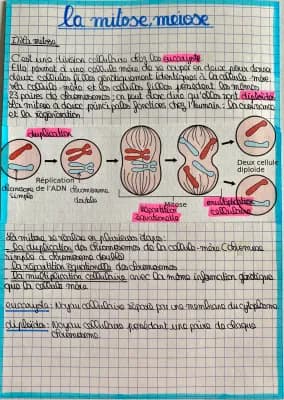 la mitose, meiose
I) la mitose
C'est une division cellulaire chez les eucaryote.
Elle permet à une cellule mère de se couper en deux pour donner
deux cellules filles génétiquement identiques à la cellule-mère.
La cellule-mère et les cellules filles possèdent les mêmes
23 paires de chromosomes : on peut donc dire qu'elles sont diploïdes
La mitose a deux principales fonctions chez l'humain : la croissance
et la régénération.
duplication
Deux cellule
diploïde
Réplication
de l'ADN
chromosome
simple
chromosome
double
Mitose
répartition
équationnelle
multiplication
cellulaire
La mitose se réalise en plusieurs étapes :
la duplication des chromosomes de la cellule-mère Chromosome
simple à chromosome double
la répartition équationnelle des chromosomes
la multiplication cellulaire avec la même information génétique
que la cellule mère
eucaryote : Noyau cellulaire séparé par une membrane du cytoplasme
diploïdes : Noyau cellulaire possédant une paire de chaque
chromosome